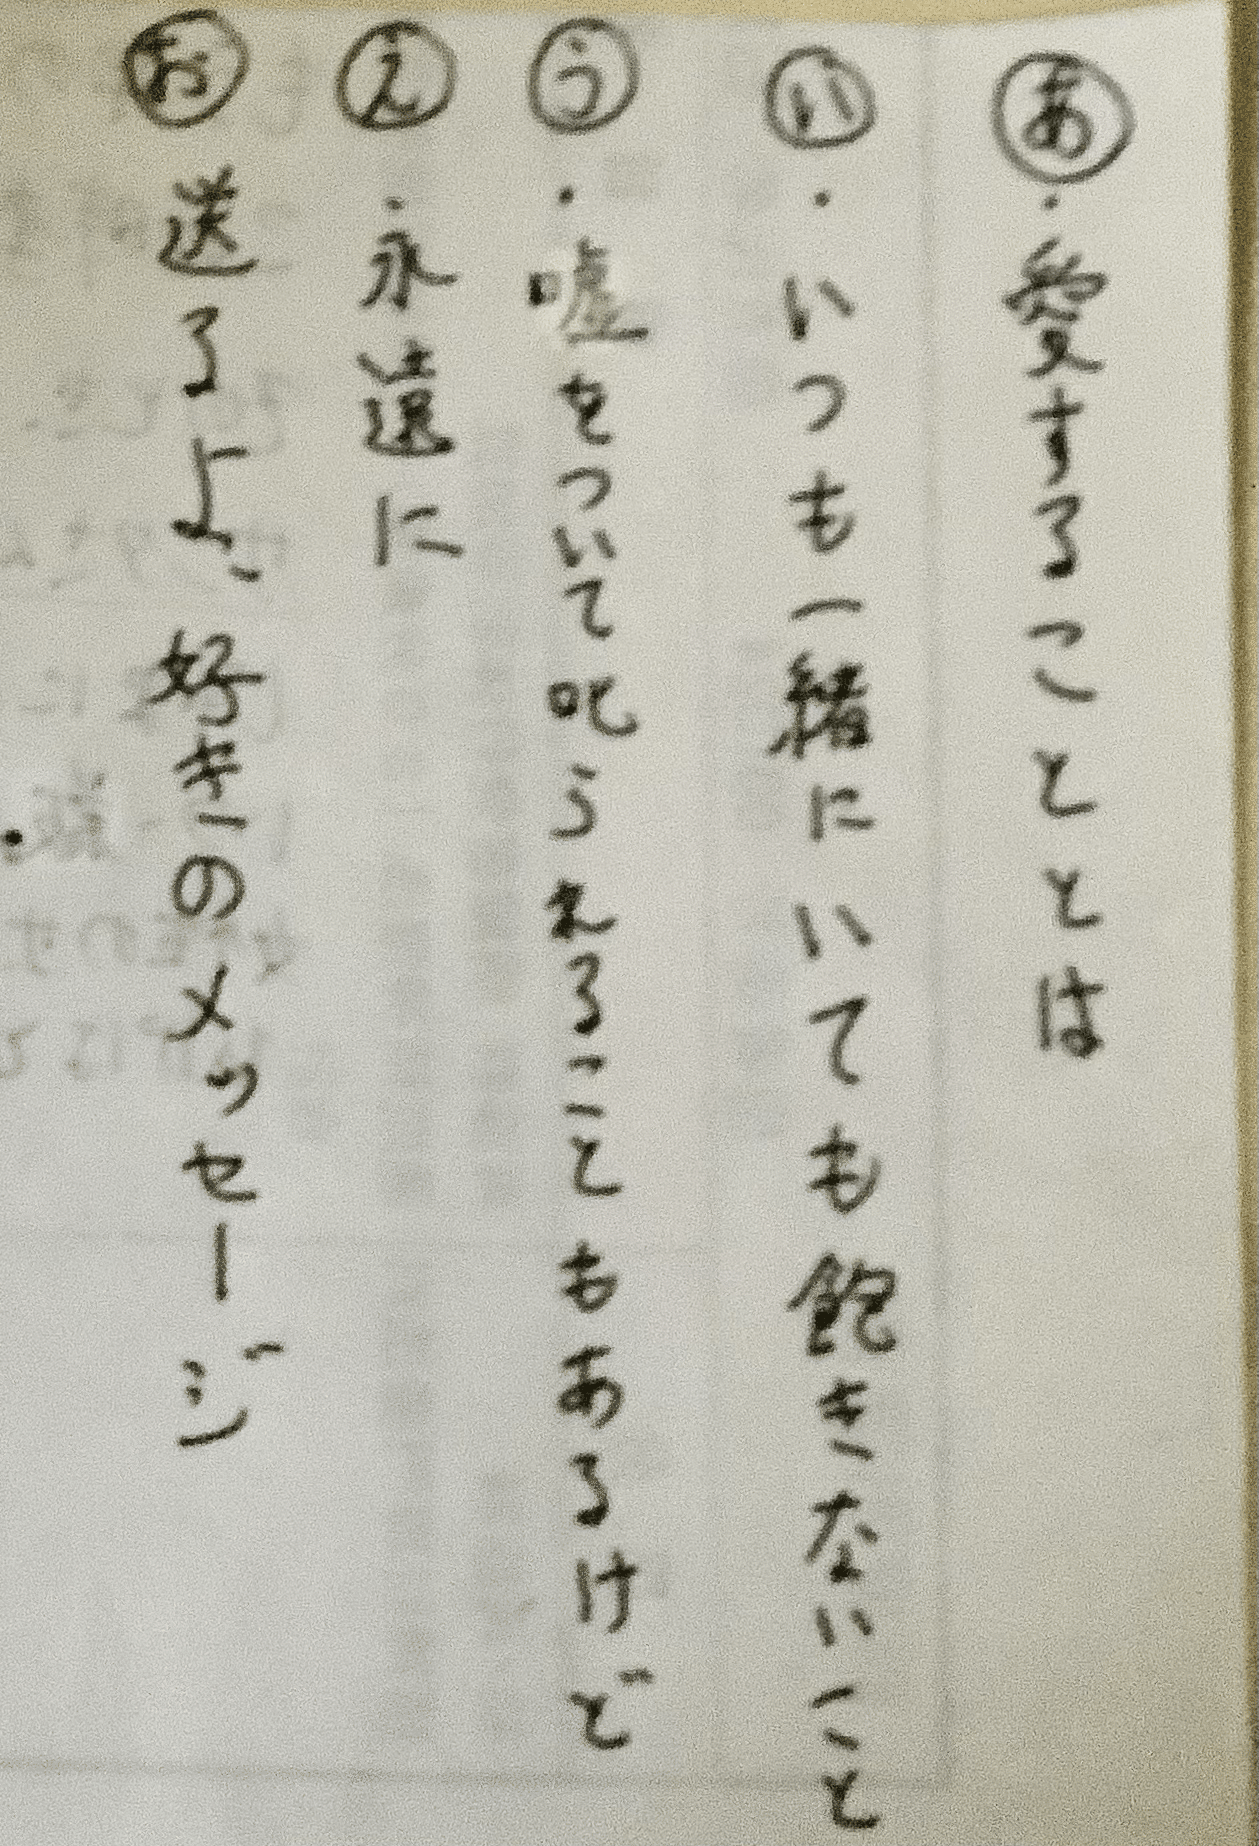 あ・愛することとは
い・いつも一緒にいても飽きないこと
う・嘘をついて叱らえることもあるけど
え・永遠に
お 送るよ、好きのメッセージ